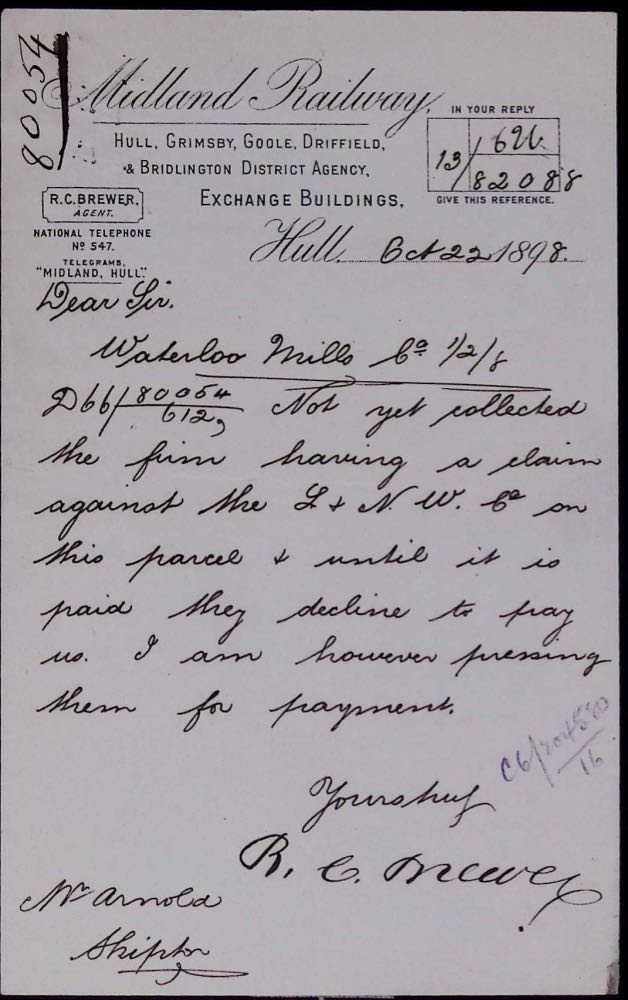 80054
Midland Railway,
HULL, GRIMSBY, GOOLE, DRIFFIELD,
& BRIDLINGTON DISTRICT AGENCY,
EXCHANGE BUILDINGS,
IN YOUR REPLY
13/
82088
GIVE THIS REFERENCE.
R.C. BREWER,
AGENT.
NATIONAL TELEPHONE
No 547.
TELEGRAMS,
"MIDLAND, HULL."
Hull, Oct 22 1898.
Dear Sir.
Waterloo Mills Co 1/2/8
D66/80054
612,
Not yet collected
the firm having a claim
against the L & N. W. Co on
this parcel & until it is
paid they decline to pay
us. I am however pressing
them for payment.
C6/
16
Yours truly
R. C. Brewer
Mr Arnold
Skipton